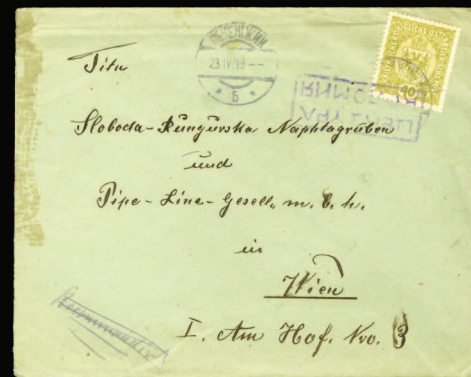 23 IV 19
Б
10
Titu
Sloboda-Rungurska Naphtagruben
und
Pipe-Line-Gesell. m. b. h.
in
Wien
I. Am Hof. Nro. 3